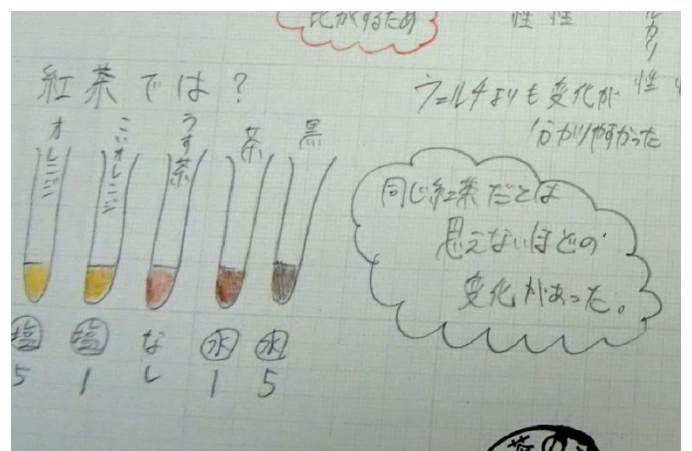 比がするため
性 性
カリ性
紅茶では?
ウェルチよりも変化が
分かりやすかった
オレンジ
こいオレンジ
うす茶
茶
黒
同じ紅茶だとは
思えないほどの
変化があった。
塩 塩 な し 水 水
5 1 1 5